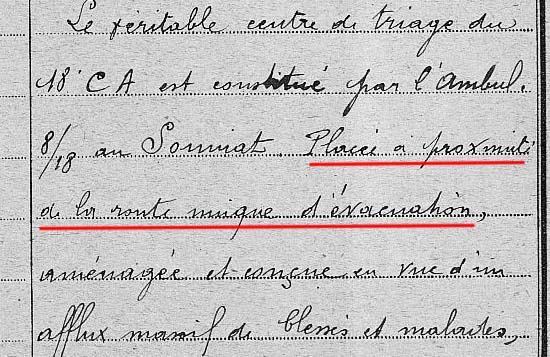 Le véritable centre de triage du
18e CA est constitué par l'Ambul.
8/18 au Sonniat. Placée à proximité
de la route unique d'évacuation,
aménagée et conçue en vue d'un
afflux massif de blessés et malades,